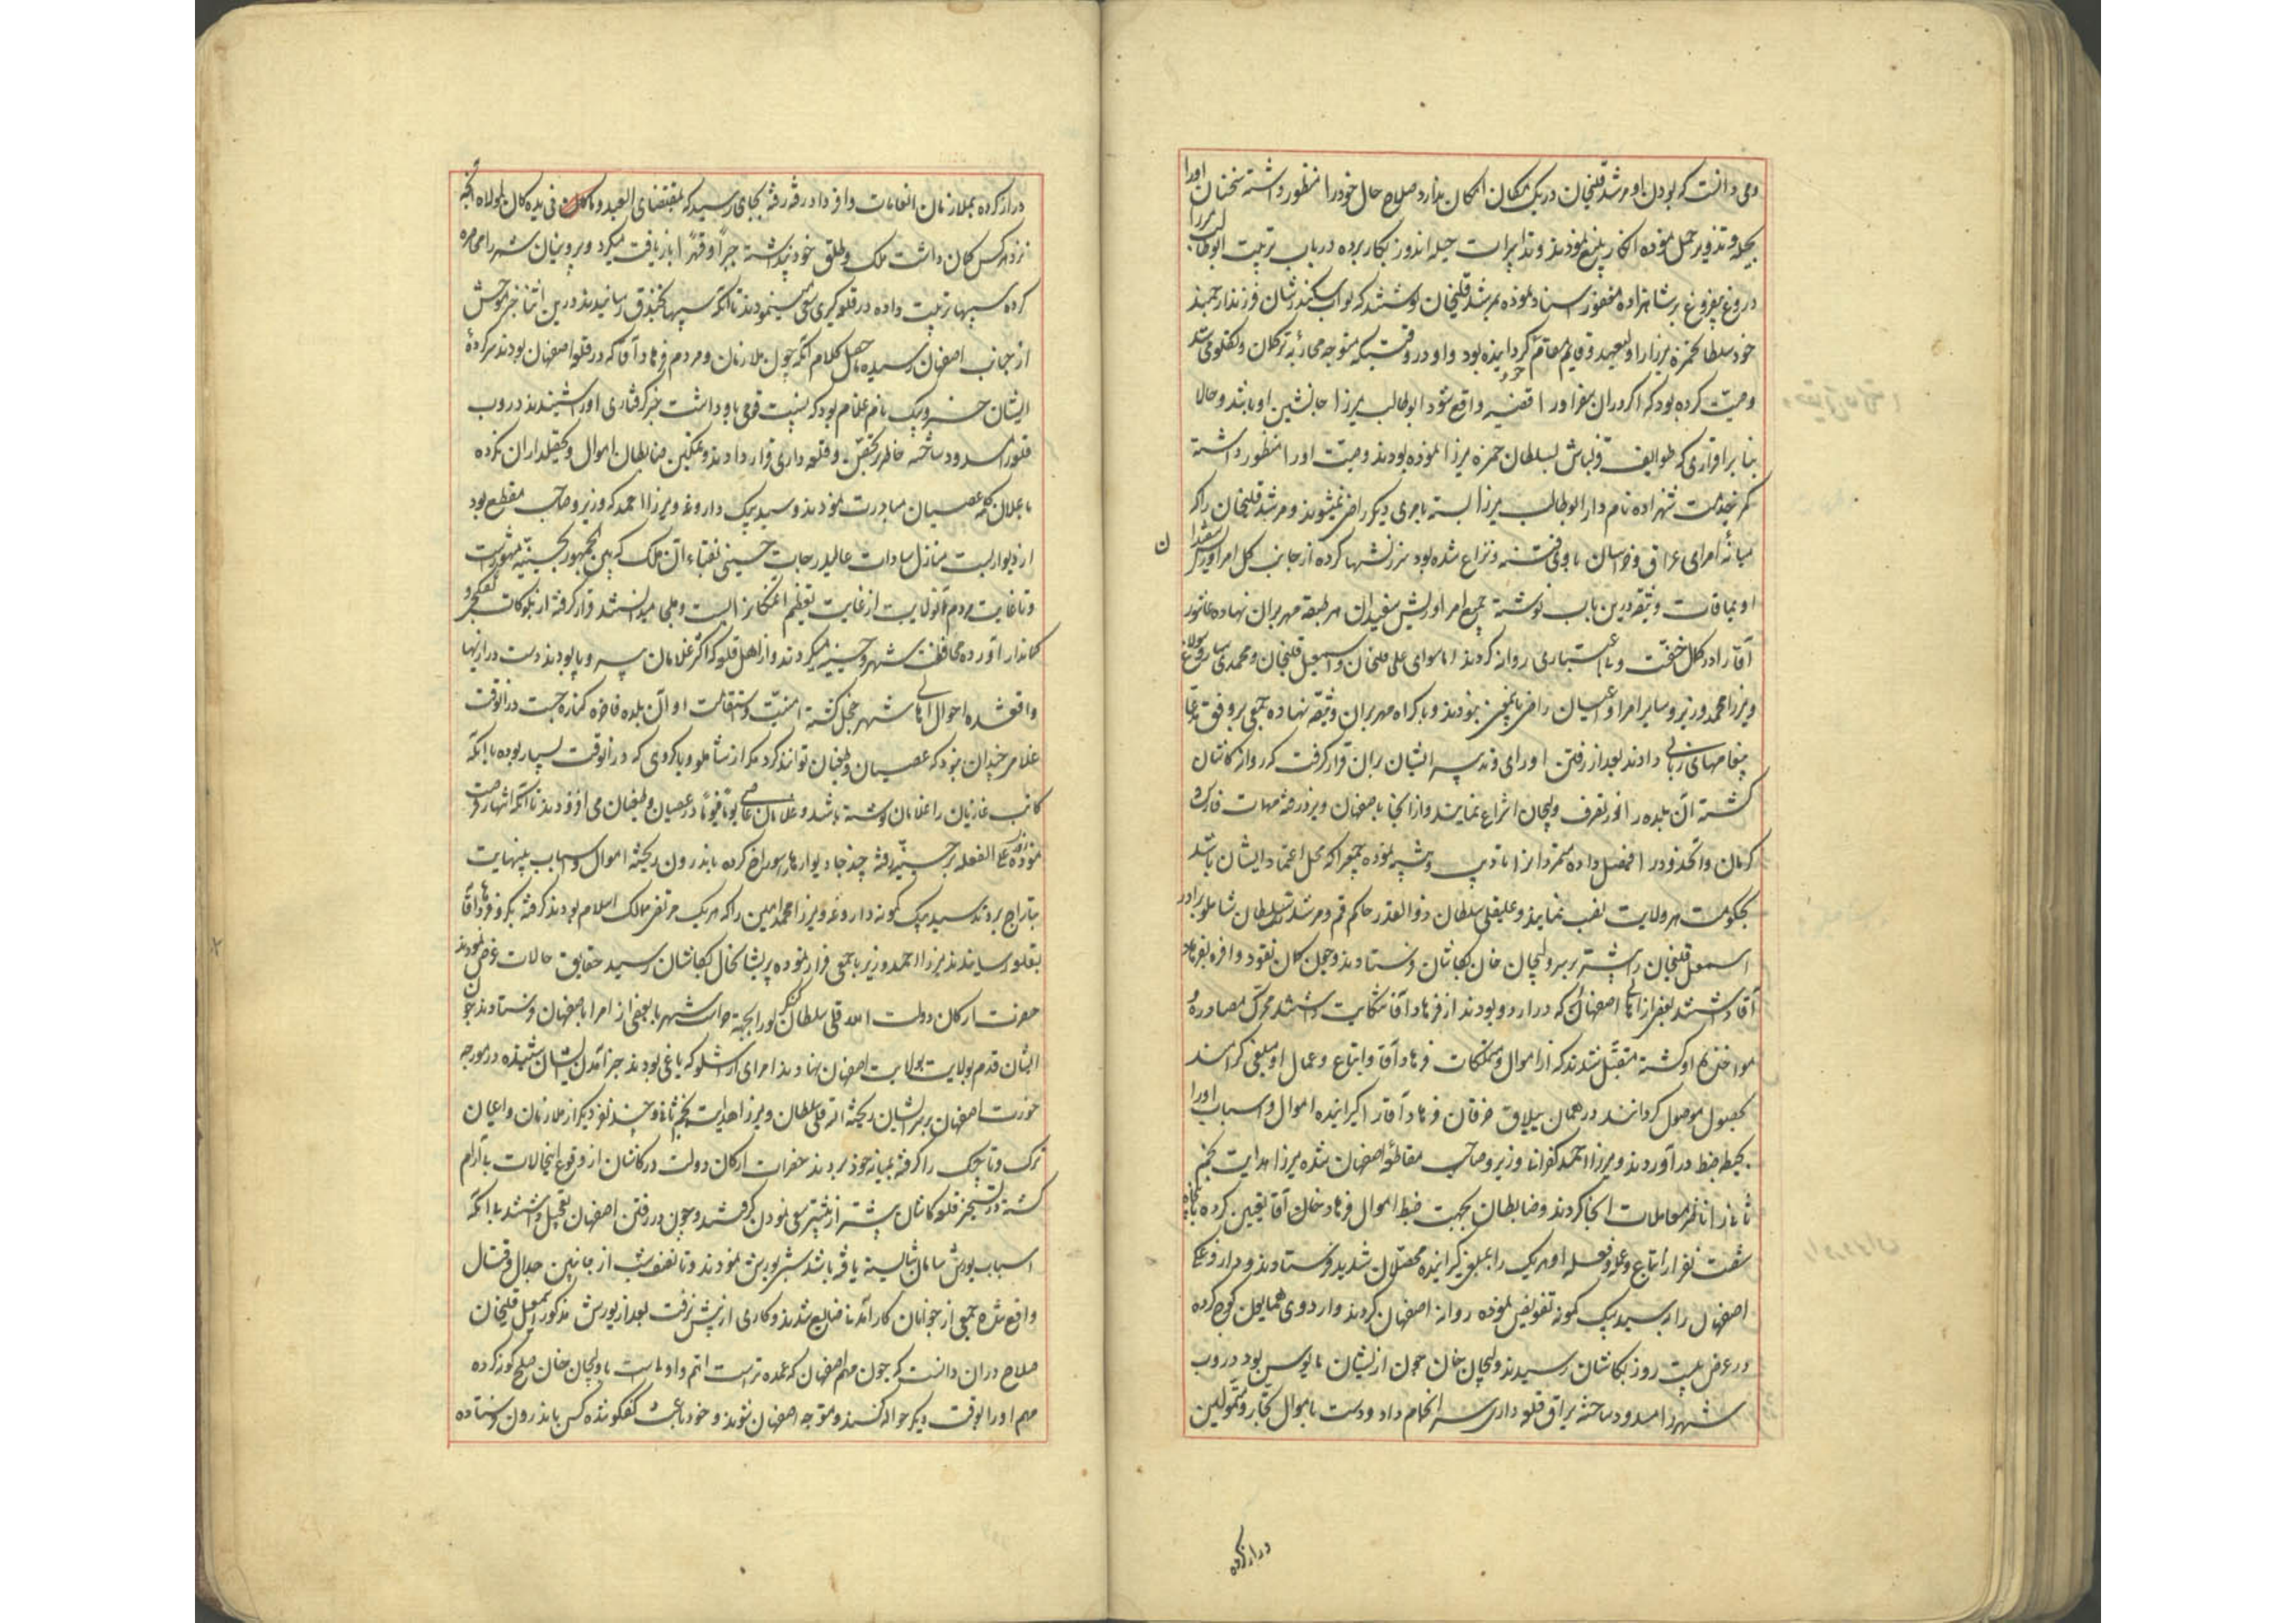 ومی دانست که بودن او و مرشد قلیخان در یک مکان امکان ندارد صلاح حال خود را منظور داشته سخنان او را
بحیله و تزویر حمل نموده انکار بلیغ نمودند و تدابیرات حیله اندوز بکار برده در باب تربیت ابوطالب میرزا
دروغ بیفروغ بر شاهزاده مغفور اسناد نموده بمرشد قلیخان نوشتند که نواب سکندرشان فرزند ارجمند
خود سلطان حمزه میرزا را ولیعهد و قایم مقام گردانیده بود و او در وقتیکه متوجه محاربه ترکمان و تکلو می شد
وصیت کرده بود که اگر در آن سفر او را قضیه واقع شود ابوطالب میرزا جانشین او باشد و حالا
بنا بر اقراری که طوایف قزلباش بسلطان حمزه میرزا نموده بودند وصیت او را منظور داشته
کمر بخدمت شهزاده نامدار ابوطالب میرزا بسته بامری دیگر راضی نمیشوند و مرشد قلیخان را که
میانه امرای عراق و خراسان باعث فتنه و نزاع شده بود سرزنشها کرده از جانب کل امرا و
اویماقات وثیقه درین باب نوشته جمیع امرا و ریش سفیدان هر طبقه مهر بران نهاده
آقا را در کمال خفت و بی اعتباری روانه کردند اما سوای علی قلیخان و اسمعیل قلیخان و محمدی
و میرزا محمد وزیر و سایر امرا و اعیان راضی باینمعنی نبودند و باکراه مهر بران وثیقه نهاده جمعی بر وفق مدعا
پیغامهای زبانی دادند بعد از رفتن او رای و تدبیر ایشان بران قرار گرفت که روانه کاشان
گشته آن بلده را از تصرف ولیجان انتزاع نمایند و از آنجا باصفهان و یزد رفته مهمات فارس
کرمان و آنحدود را فیصل داده متمردان را تادیب و تنبیه نموده جمعی را که محل اعتماد ایشان باشد
بحکومت هر ولایت نصب نمایند و علیقلی سلطان ذوالقدر حاکم قم و مرشد قلی سلطان شاملو برادر
اسمعیل قلیخان را پیشتر بر سر ولیجان خان بکاشان فرستادند و چون کمان نقود وافره بفرهاد
آقا داشتند بعضی از اهالی اصفهان که در اردو بودند از فرهاد آقا شکایت داشتند محرک مصادره و
مواخذه او گشته متقبل شدند که از اموال و متملکات فرهاد آقا و اتباع و عمال او مبلغی گرامند
بحصول موصول گردانند در همان ییلاق خرقان فرهاد آقا را گیرانیده اموال و اسباب او را
بحیطه ضبط در آوردند و میرزا احمد کفرانی وزیر و صاحب مقاطعه اصفهان شده میرزا هدایت نجم
ثانی را ناظر معاملات آنجا کردند و ضابطان بجهت ضبط اموال فرهاد خان آقا تعیین کرده
شصت نفر از اتباع و عمله و فعله او هر یک را بمبلغی گیرانیده محصلان شدید فرستادند و داروغگی
اصفهان را به سید بیک کمونه تفویض نموده روانه اصفهان کردند و اردوی همایون کوچ کرده
در عرض بیست روز بکاشان رسیدند ولیجان خان چون از ایشان مایوس بود دروب
شهر را مسدود ساخته یراق قلعه داری سرانجام داد و دست باموال تجار و متمولین
دراز کرده
دراز کرده بملازمان انعامات وافر داد رفته رفته بجای رسید که بمقتضای العبد و ما فی یده کان لمولاه آنچه
نزد هر کس کمان داشت ملک و طلق خود پنداشته جبراً و قهراً بازیافت میکرد و بیرونیان شهر را محاصره
کرده سیبها ترتیب داده در قلعه گیری سعی مینمودند تا آنکه سیبها بخندق رسانیدند درین اثنا خبر موحش
از جانب اصفهان رسید حاصل کلام آنکه چون ملازمان و مردم فرهاد آقا که در قلعه اصفهان بودند سرکرده
ایشان خسرو بیک نام غلام بود که نسبت قومی باو داشت خبر گرفتاری او را شنیدند دروب
قلعه را مسدود ساخته خاطر بتحصن و قلعه داری قرار دادند و تمکین ضابطان اموال و تحصیلداران نکرده
باعلان کلمه عصیان مبادرت نمودند و سید بیک داروغه و میرزا احمد که وزیر و صاحب مقطع بود
از دیوار بست منازل سادات عالیدرجات حسینی نقباء آن ملک که بین الجمهور بحسینیه مشهور است
و تا غایت مردم آنولایت از غایت تعظیم آنمکانرا بست و ملجا میدانستند قرار گرفته از بلوکات تفنگچی و
کماندار آورده محافظت شهر و حسینیه میکردند و از اهل قلعه که اکثر غلامان بی سر و پا بودند دست درازیها
واقع شده احوال اهالی شهر مختل گشته امنیت و استقامت از آن بلده فاخره کناره جست در آنوقت
غلام چندان نبود که عصیان و طغیان توانند کرد مگر از شاملو و یا کردی که در آنوقت بسیار بوده با آنکه
کاتب غازیان را غلامان نوشته باشد و غلامان عاصی یوماً فیوماً در عصیان و طغیان می افزودند تا آنکه انتهاز فرصت
نموده علی الغفله بر حسینیه رفته چند جا دیوارها سوراخ کرده باندرون ریخته اموال و اسباب بینهایت
بتاراج بردند سید بیک کمونه داروغه و میرزا محمد امین را که هر یک مرتضی ممالک اسلام بودند گرفته بگرو فرهاد آقا
بقلعه رسانیدند میرزا احمد وزیر با جمعی فرار نموده پریشانحال بکاشان رسید حقایق حالات عرض نمودند
حضرات ارکان دولت امت قلی سلطان کنگرلو را بجهة حراست شهر با بعضی از امرا باصفهان فرستادند چون
ایشان قدم بولایت اصفهان نهادند امرای ارشلو که یاغی بودند خبر آمدن ایشان شنیده در مورچه
خورت اصفهان بر سر ایشان ریخته امت قلی سلطان و میرزا هدایت نجم ثانی و چند نفر دیگر از ملازمان و اعیان
ترک و تاجیک را گرفته بمیانه خود بردند حضرات ارکان دولت در کاشان از وقوع اینحالات بی آرام
گشته در تسخیر قلعه کاشان بیشتر از پیشتر سعی نمودن گرفتند و چون در رفتن اصفهان تعجیل داشتند با آنکه
اسباب یورش سامان شایسته یافته باشد شبی یورش نمودند و تا نصف شب از جانبین جدال و قتال
واقع شده جمعی از جوانان کارآمدنی ضایع شدند و کاری از پیش نرفت بعد از یورش مذکور اسمعیل قلیخان
صلاح در آن دانست که چون مهم اصفهان که عمده تر است اتم و اولی است با ولیجان خان صلح گونه کرده
مهم او را بوقت دیگر حواله کنند و متوجه اصفهان شوند و خود باعث گفتگو شده کس باندرون فرستاده